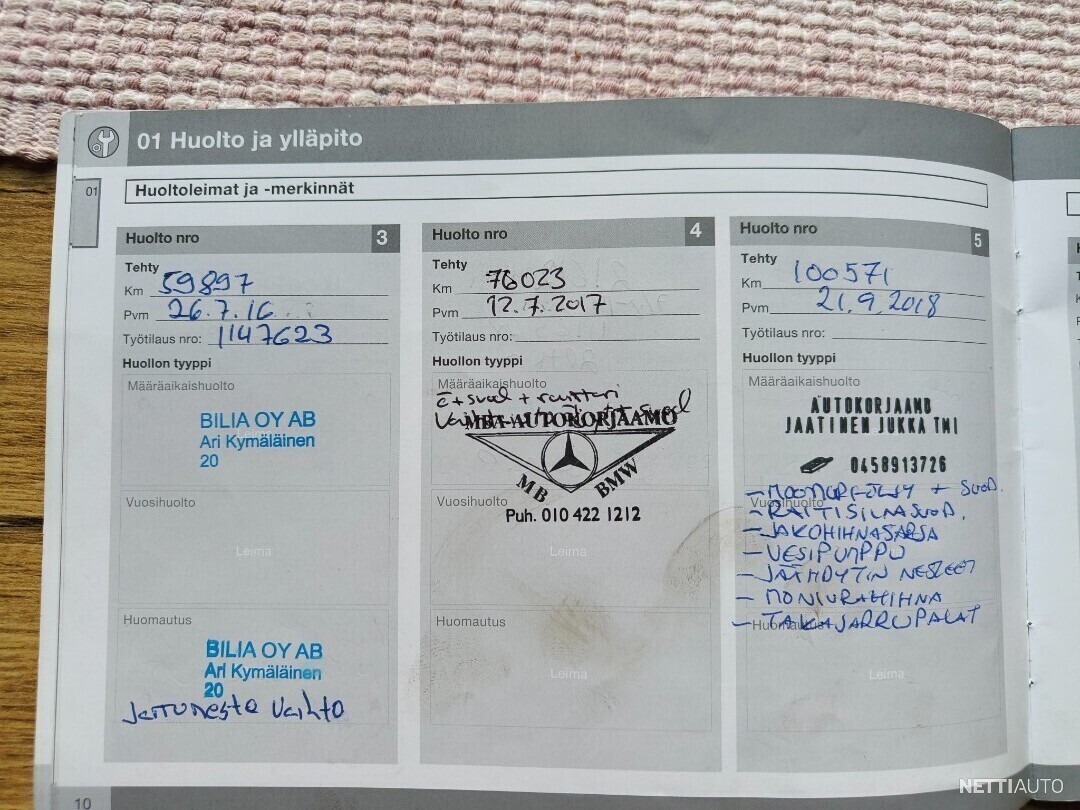 01 Huolto ja ylläpito
01
Huoltoleimat ja -merkinnät
Huolto nro 3
Tehty
Km 59897
Pvm 26.7.16
Työtilaus nro: 1147623
Huollon tyyppi
Määräaikaishuolto
BILIA OY AB
Ari Kymäläinen
20
Vuosihuolto
Leima
Huomautus
BILIA OY AB
Ari Kymäläinen
20
Jarruneste vaihto
Huolto nro 4
Tehty
Km 76023
Pvm 12.7.2017
Työtilaus nro:
Huollon tyyppi
Määräaikaishuolto
MBA-AUTOKORJAAMO
MB BMW
Vuosihuolto
Puh. 010 422 1212
Leima
Huomautus
Leima
Huolto nro 5
Tehty
Km 100571
Pvm 21.9.2018
Työtilaus nro:
Huollon tyyppi
Määräaikaishuolto
AUTOKORJAAMO
JAATINEN JUKKA TMI
0458913726
- MOOTTORIÖLJY + SUOD.
Vuosihuolto
- RAITISILMASUOD.
- JAKOHIHNASARJA
- VESIPUMPPU
- JÄÄHDYTIN NESTEET
- MONIURAHIHNA
Huomautus
- TAKAJARRUPALAT
Leima
10
NETTIAUTO